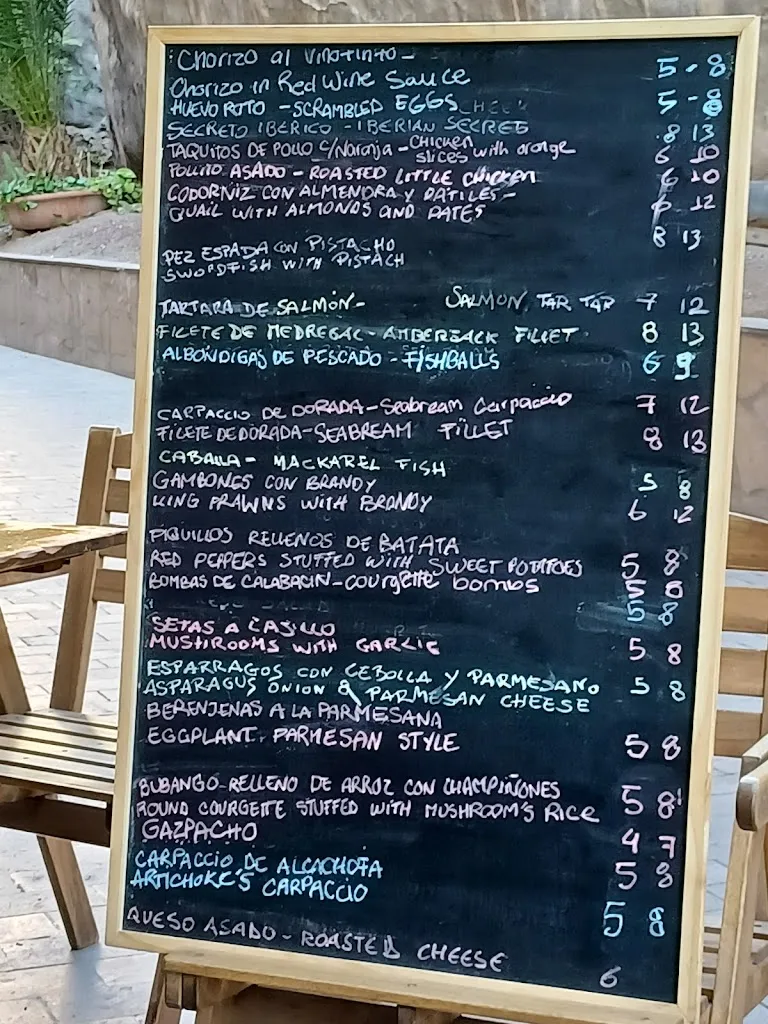 Chorizo al vinotinto - 5 - 8
Chorizo in Red Wine Sauce
HUEVO ROTO - SCRAMBLED EGGS 5 - 8
SECRETO IBERICO - IBERIAN SECRET 8 13
TAQUITOS DE POLLO C/Naranja - Chicken slices with orange 6 10
POLLITO ASADO - ROASTED LITTLE CHICKEN 6 10
CODORNIZ CON ALMENDRA Y DATILES - 6 12
QUAIL WITH ALMONDS AND DATES
8 13
PEZ ESPADA CON PISTACHO
SWORDFISH WITH PISTACH
TARTARA DE SALMÓN - SALMON TAR TAR 7 12
FILETE DE MEDREGAL - AMBERJACK FILLET 8 13
ALBONDIGAS DE PESCADO - FISHBALLS 6 9
CARPACCIO DE DORADA - Seabream Carpaccio 7 12
FILETE DE DORADA - SEABREAM FILLET 8 13
CABALLA - MACKAREL FISH
GAMBONES CON BRANDY 5 8
KING PRAWNS WITH BRANDY 6 12
PIQUILLOS RELLENOS DE BATATA
RED PEPPERS STUFFED WITH SWEET POTATOES 5 8
BOMBAS DE CALABACIN - courgette bombs 5 8
5 8
SETAS A CASILLO
MUSHROOMS WITH GARLIC 5 8
ESPARRAGOS CON CEBOLLA Y PARMESANO 5 8
ASPARAGUS ONION & PARMESAN CHEESE
BERENJENAS A LA PARMESANA
EGGPLANT PARMESAN STYLE 5 8
BUBANGO RELLENO DE ARROZ CON CHAMPIÑONES 5 8
ROUND COURGETTE STUFFED WITH MUSHROOM'S RICE
GAZPACHO 4 7
CARPACCIO DE ALCACHOFA 5 8
ARTICHOKE'S CARPACCIO
5 8
QUESO ASADO - ROASTED CHEESE 6